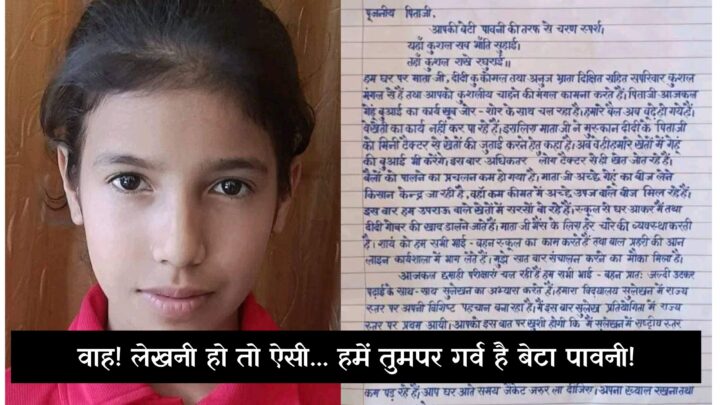 पूजनीय पिताजी,
आपकी बेटी पावनी की तरफ से चरण स्पर्श।
यहाँ कुशल सब भाँति सुहाई।
तहाँ कुशल राखे रघुराई॥
हम घर पर माता जी, दीदी कु० कोमल तथा अनुज भ्राता दिक्षित सहित सपरिवार कुशल
मंगल से हैं तथा आपको कुशलीय चाहने की मंगल कामना करते हैं। पिताजी आजकल
गेहूं बुआई का कार्य खूब जोर-शोर के साथ चल रहा है। हमारे बैल अब बूढ़े हो गये हैं।
वे खेतों का कार्य नहीं कर पा रहे हैं। इसलिए माता जी ने मुस्कान दीदी के पिताजी
को मिनी टेक्टर से खेतों की जुताई करने हेतु कहा है। अब वही हमारे खेतों में गेहूं
की बुआई भी करेंगे। इस बार अधिकतर लोग टेक्टर से ही खेत जोत रहे हैं।
बैलों को पालन का प्रचलन कम हो गया है। माता जी अच्छे गेहूं का बीज लेने
किसान केन्द्र जा रही है, वहाँ कम कीमत में अच्छे उपज वाले बीज मिल रहे हैं।
इस बार हम उपराऊ वाले खेतों में सरसों बो रहे हैं। स्कूल से घर आकर मैं तथा
दीदी गोबर की खाद डालने जाते हैं। माता जी भैंस के लिए हरे चारे की व्यवस्था करती
है। सायं को हम सभी भाई-बहन स्कूल का काम करते हैं तथा बाल प्रहरी की आन
लाइन कार्यशाला में भाग लेते हैं। मुझे सात बार संचालन करने का मौका मिला है।
आजकल छमाही परीक्षाएं चल रही हैं हम सभी भाई-बहन प्रातः जल्दी उठकर
पढ़ाई के साथ-साथ सुलेखन का अभ्यास करते हैं। हमारा विद्यालय सुलेखन में राज्य
स्तर पर अपनी विशिष्ट पहचान बना रहा है। मैं इस बार सुलेख प्रतियोगिता में राज्य
स्तर पर प्रथम आयी। आपको इस बात पर खुशी होगी कि मैं सुलेखन में राष्ट्रीय स्तर
वाह! लेखनी हो तो ऐसी... हमें तुमपर गर्व है बेटा पावनी!
कम पड़ रहे हैं। आप घर आते समय जैकेट जरूर ला दीजिए। अपना ख्याल रखना तथा